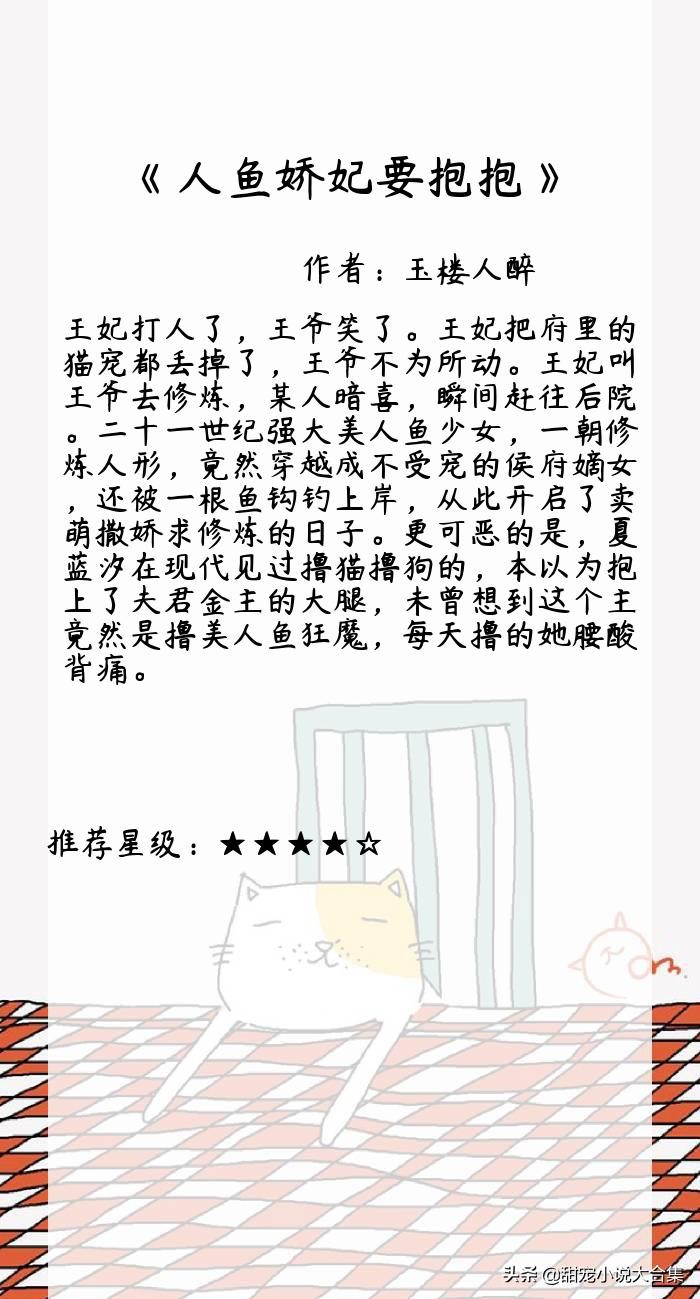 《人鱼娇妃要抱抱》
作者：玉楼人醉
王妃打人了，王爷笑了。王妃把府里的
猫宠都丢掉了，王爷不为所动。王妃叫
王爷去修炼，某人暗喜，瞬间赶往后院
。二十一世纪强大美人鱼少女，一朝修
炼人形，竟然穿越成不受宠的侯府嫡女
，还被一根鱼钩钓上岸，从此开启了卖
萌撒娇求修炼的日子。更可恶的是，夏
蓝汐在现代见过撸猫撸狗的，本以为抱
上了夫君金主的大腿，未曾想到这个主
竟然是撸美人鱼狂魔，每天撸的她腰酸
背痛。
推荐星级：★★★★☆
头条 @甜宠小说大合集